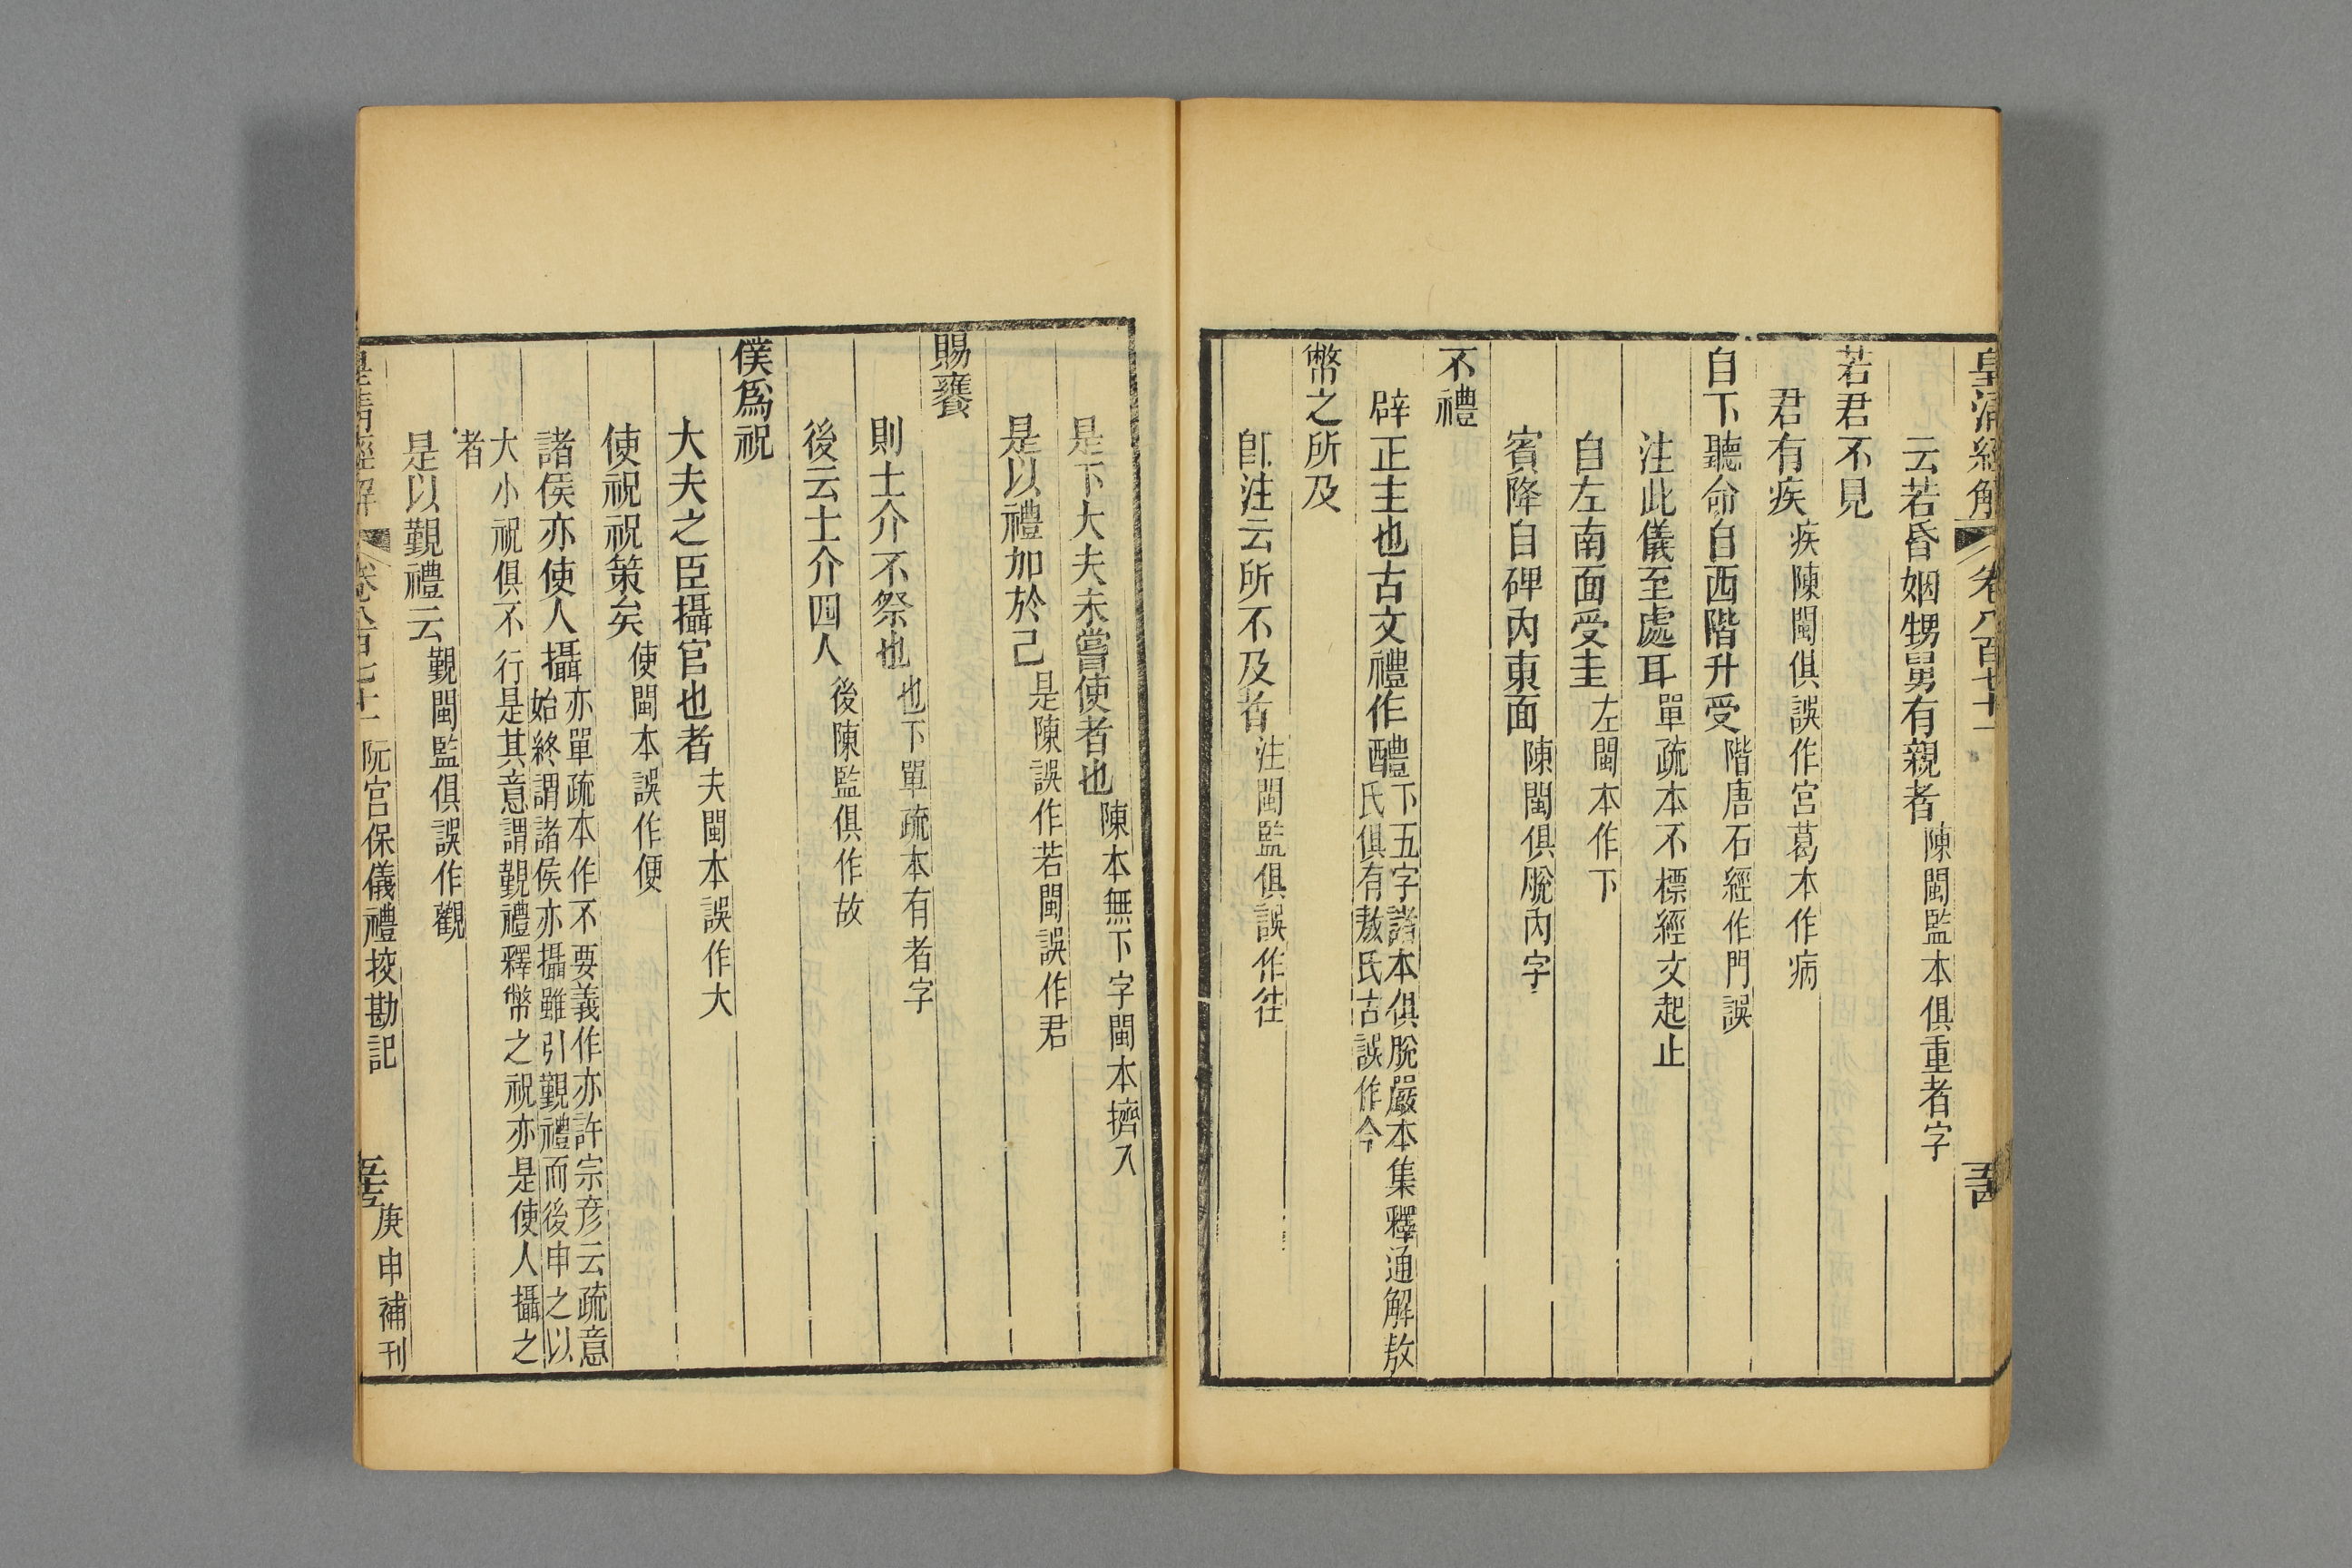 皇清經解 卷八百七十一 五十四
云若昏姻甥舅有親者陳閩監本俱重者字
若君不見
君有疾疾陳閩俱誤作宮葛本作病
自下聽命自西階升受階唐石經作門誤
注此儀至處耳單疏本不標經文起止
自左南面受圭左閩本作下
賓降自碑內東面陳閩俱脫內字
不禮
辟正主也古文禮作醴下五字諸本俱脫嚴本集釋通解敖
氏俱有敖氏古誤作今
幣之所及
卽注云所不及者注閩監俱誤作往
是下大夫未嘗使者也陳本無下字閩本擠入
是以禮加於己是陳誤作若閩誤作君
賜饔
則士介不祭也也下單疏本有者字
後云士介四人後陳監俱作故
僕爲祝
大夫之臣攝官也者夫閩本誤作大
使祝祝策矣使閩本誤作便
諸侯亦使人攝亦單疏本作不要義作亦許宗彥云疏意
始終謂諸侯亦攝雖引覲禮而後申之以
大小祝俱不行是其意謂覲禮釋幣之祝亦是使人攝之
者
是以覲禮云覲閩監俱誤作觀
皇清經解 卷八百七十一 阮宮保儀禮挍勘記 庚申補刊